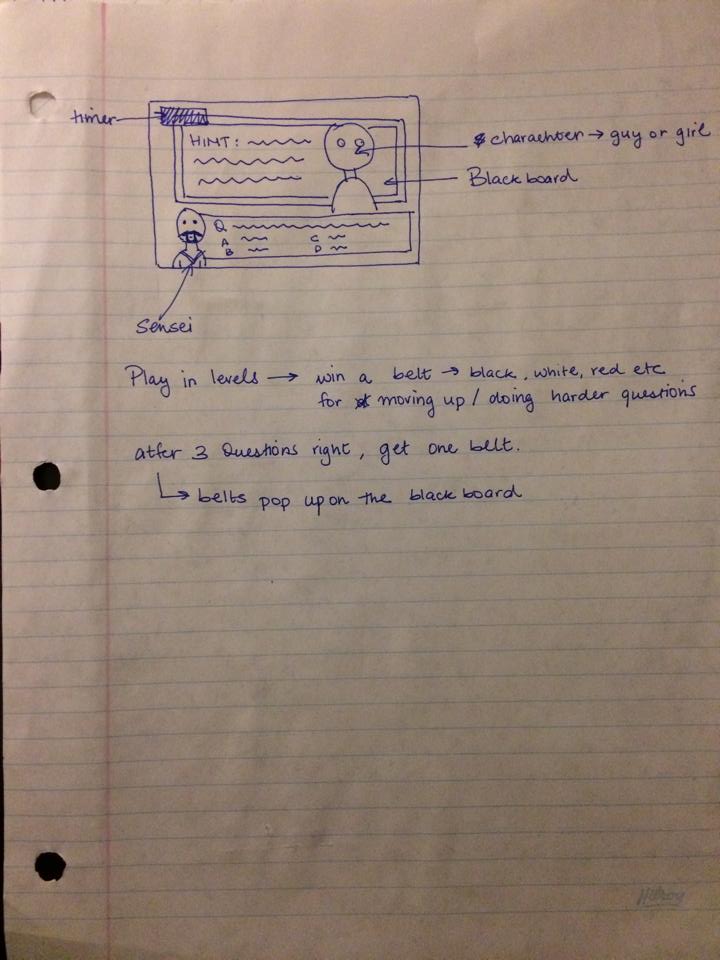 timer
HINT:
charachter → guy or girl
Blackboard
Q
A C
B D
Sensei
Play in levels → win a belt → black, white, red etc
for moving up / doing harder questions
atfer 3 Questions right, get one belt.
↳ belts pop up on the blackboard
Hilroy